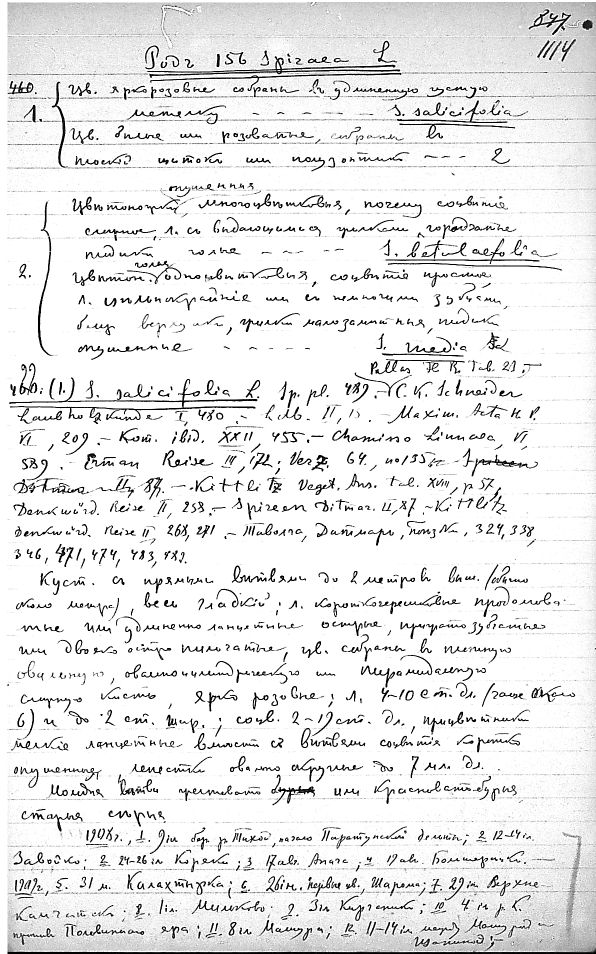 847
1114
Родъ 156 Spiraea L
460.
1. Цв. яркорозовые собраны въ удлиненную густую
метелку - - - - - S. salicifolia
Цв. белые или розоватые, собраны въ
плоскій щитокъ или полузонтикъ - - - 2
опушенныя
2. Цвѣтоножки, многоцвѣтковыя, почему соцвѣтіе
сложное, л. съ выдающимися городчатые
голые - - - - S. betulaefolia
голыя
Цвѣтон. одноцвѣтковыя, соцвѣтіе простое,
л. цѣльнокрайніе или съ немногими зубцами,
близъ верхушки, малозамѣтныя,
опушенные - - - - S. media
Pallas Fl. R. tab. 23.
460. (1.) S. salicifolia L. Sp. pl. 489. - C. K. Schneider
Laubholzkunde I, 480. - II, - Maxim. Acta H. P.
VI, 209. - Kom. ibid. XXII, 455. - Chamisso Linnaea, VI,
589. - Erman Reise III, 172; Verz. 64, no 135. - Spireen
Ditmar II, 87. - Kittlitz Veget. Ans. tab. XVIII, p 57,
Denkwürd. Reise II, 258. - Spireen Ditmar. II, 87. - Kittlitz
Denkwürd. Reise II, 268, 271. - Таволга, Дитмаръ, 324, 338,
346, 471, 474, 483, 489.
Куст. съ прямыми вѣтвями до 2 метровъ выш. (обычно
около метра), весь гладкій; л. короткочерешковые продолгова-
тые или удлиненно ланцетные острые, зубчатые
или двояко остро пильчатые, цв. собраны въ плотную
овальную, овальноцилиндрическую или пирамидальную
сложную кисть, ярко розовые; л. 4-10 ст. дл. (чаще около
6) и до 2 ст. шир.; соцв. 2-19 ст. дл., прицвѣтники
мелкіе ланцетные вмѣстѣ съ вѣтвями соцвѣтія коротко
опушенные, лепестки овально округлые до 7 мл. дл.
Молодыя вѣтви или красновато-бурыя,
старыя сѣрыя
1908 г., 1. 9 іл бер. р. Тихой, начало Паратунской дельты; 2 12-14 іл
Завойко; 2 24-26 іл Коряки; 3 17 ав. Апача; 4 19 ав. Большерѣцк. -
1909 г., 5. 31 м. Калахтырка; 6. 26 ін. первые цв., Шарома; 7. 29 ін Верхне-
Камчатскъ; 8. 1 іл. Мильково. 9. 3 іл Кирганикъ; 10 4 іл р. К.
противъ Половиннаго яра; 11. 8 іл Машура; 12. 11-14 іл между Машурой и